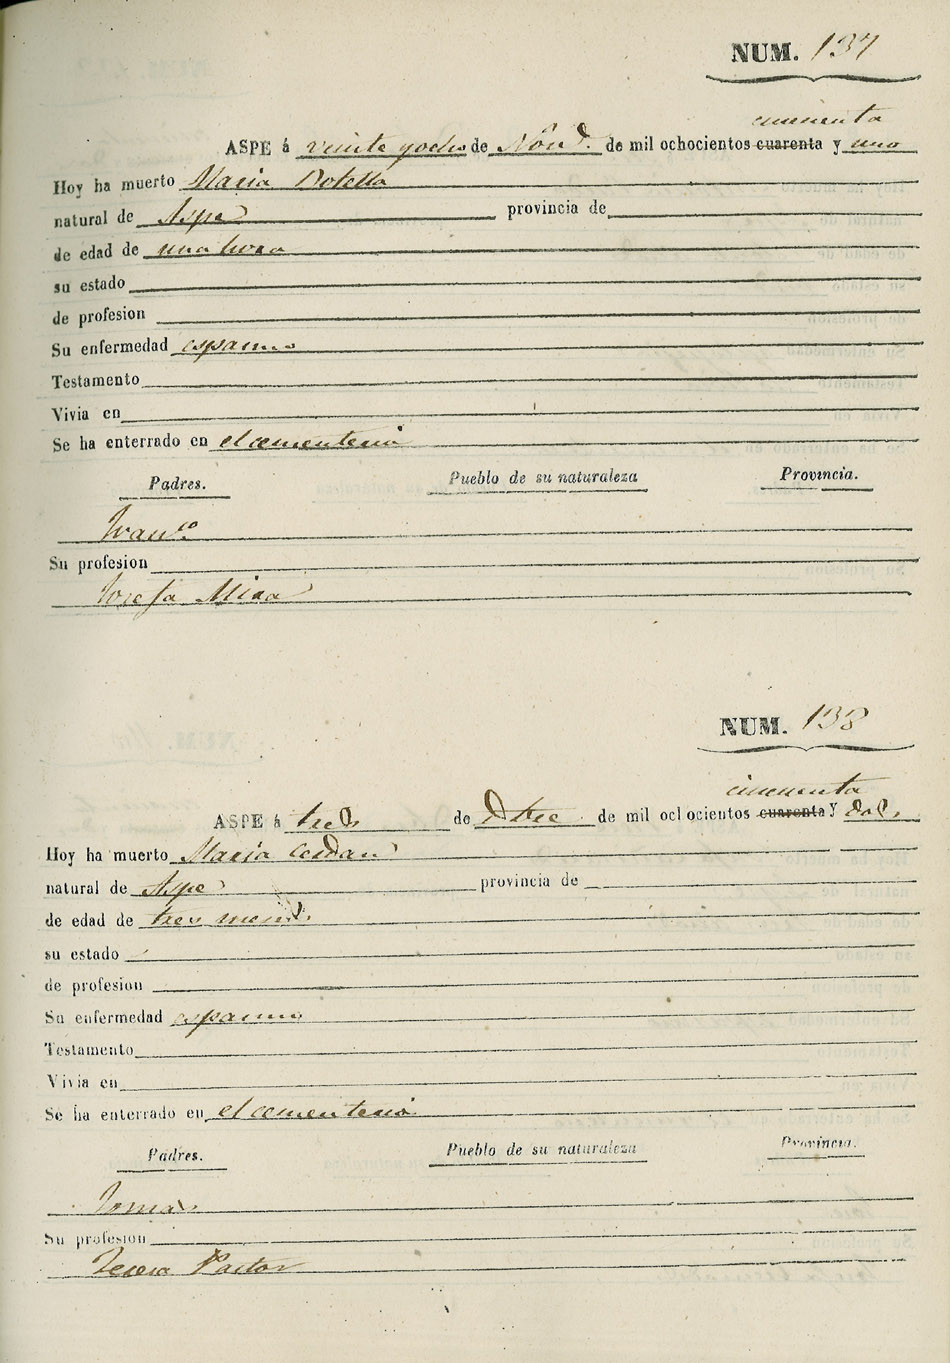 NUM. 137
cincuenta
ASPE á veinte y ocho de Nov.e de mil ochocientos cuarenta y uno
Hoy ha muerto Maria Botella
natural de Aspe provincia de
de edad de una hora
su estado
de profesion
Su enfermedad espasmo
Testamento
Vivia en
Se ha enterrado en el cementerio
Padres. Pueblo de su naturaleza Provincia.
Franco
Su profesion
Josefa Mira
NUM. 138
cincuenta
ASPE á tres de Dbre de mil ochocientos cuarenta y dos
Hoy ha muerto Maria Cerdan
natural de Aspe provincia de
de edad de tres meses
su estado
de profesion
Su enfermedad espasmo
Testamento
Vivia en
Se ha enterrado en el cementerio
Padres. Pueblo de su naturaleza Provincia.
Tomas
Su profesion
Teresa Pastor